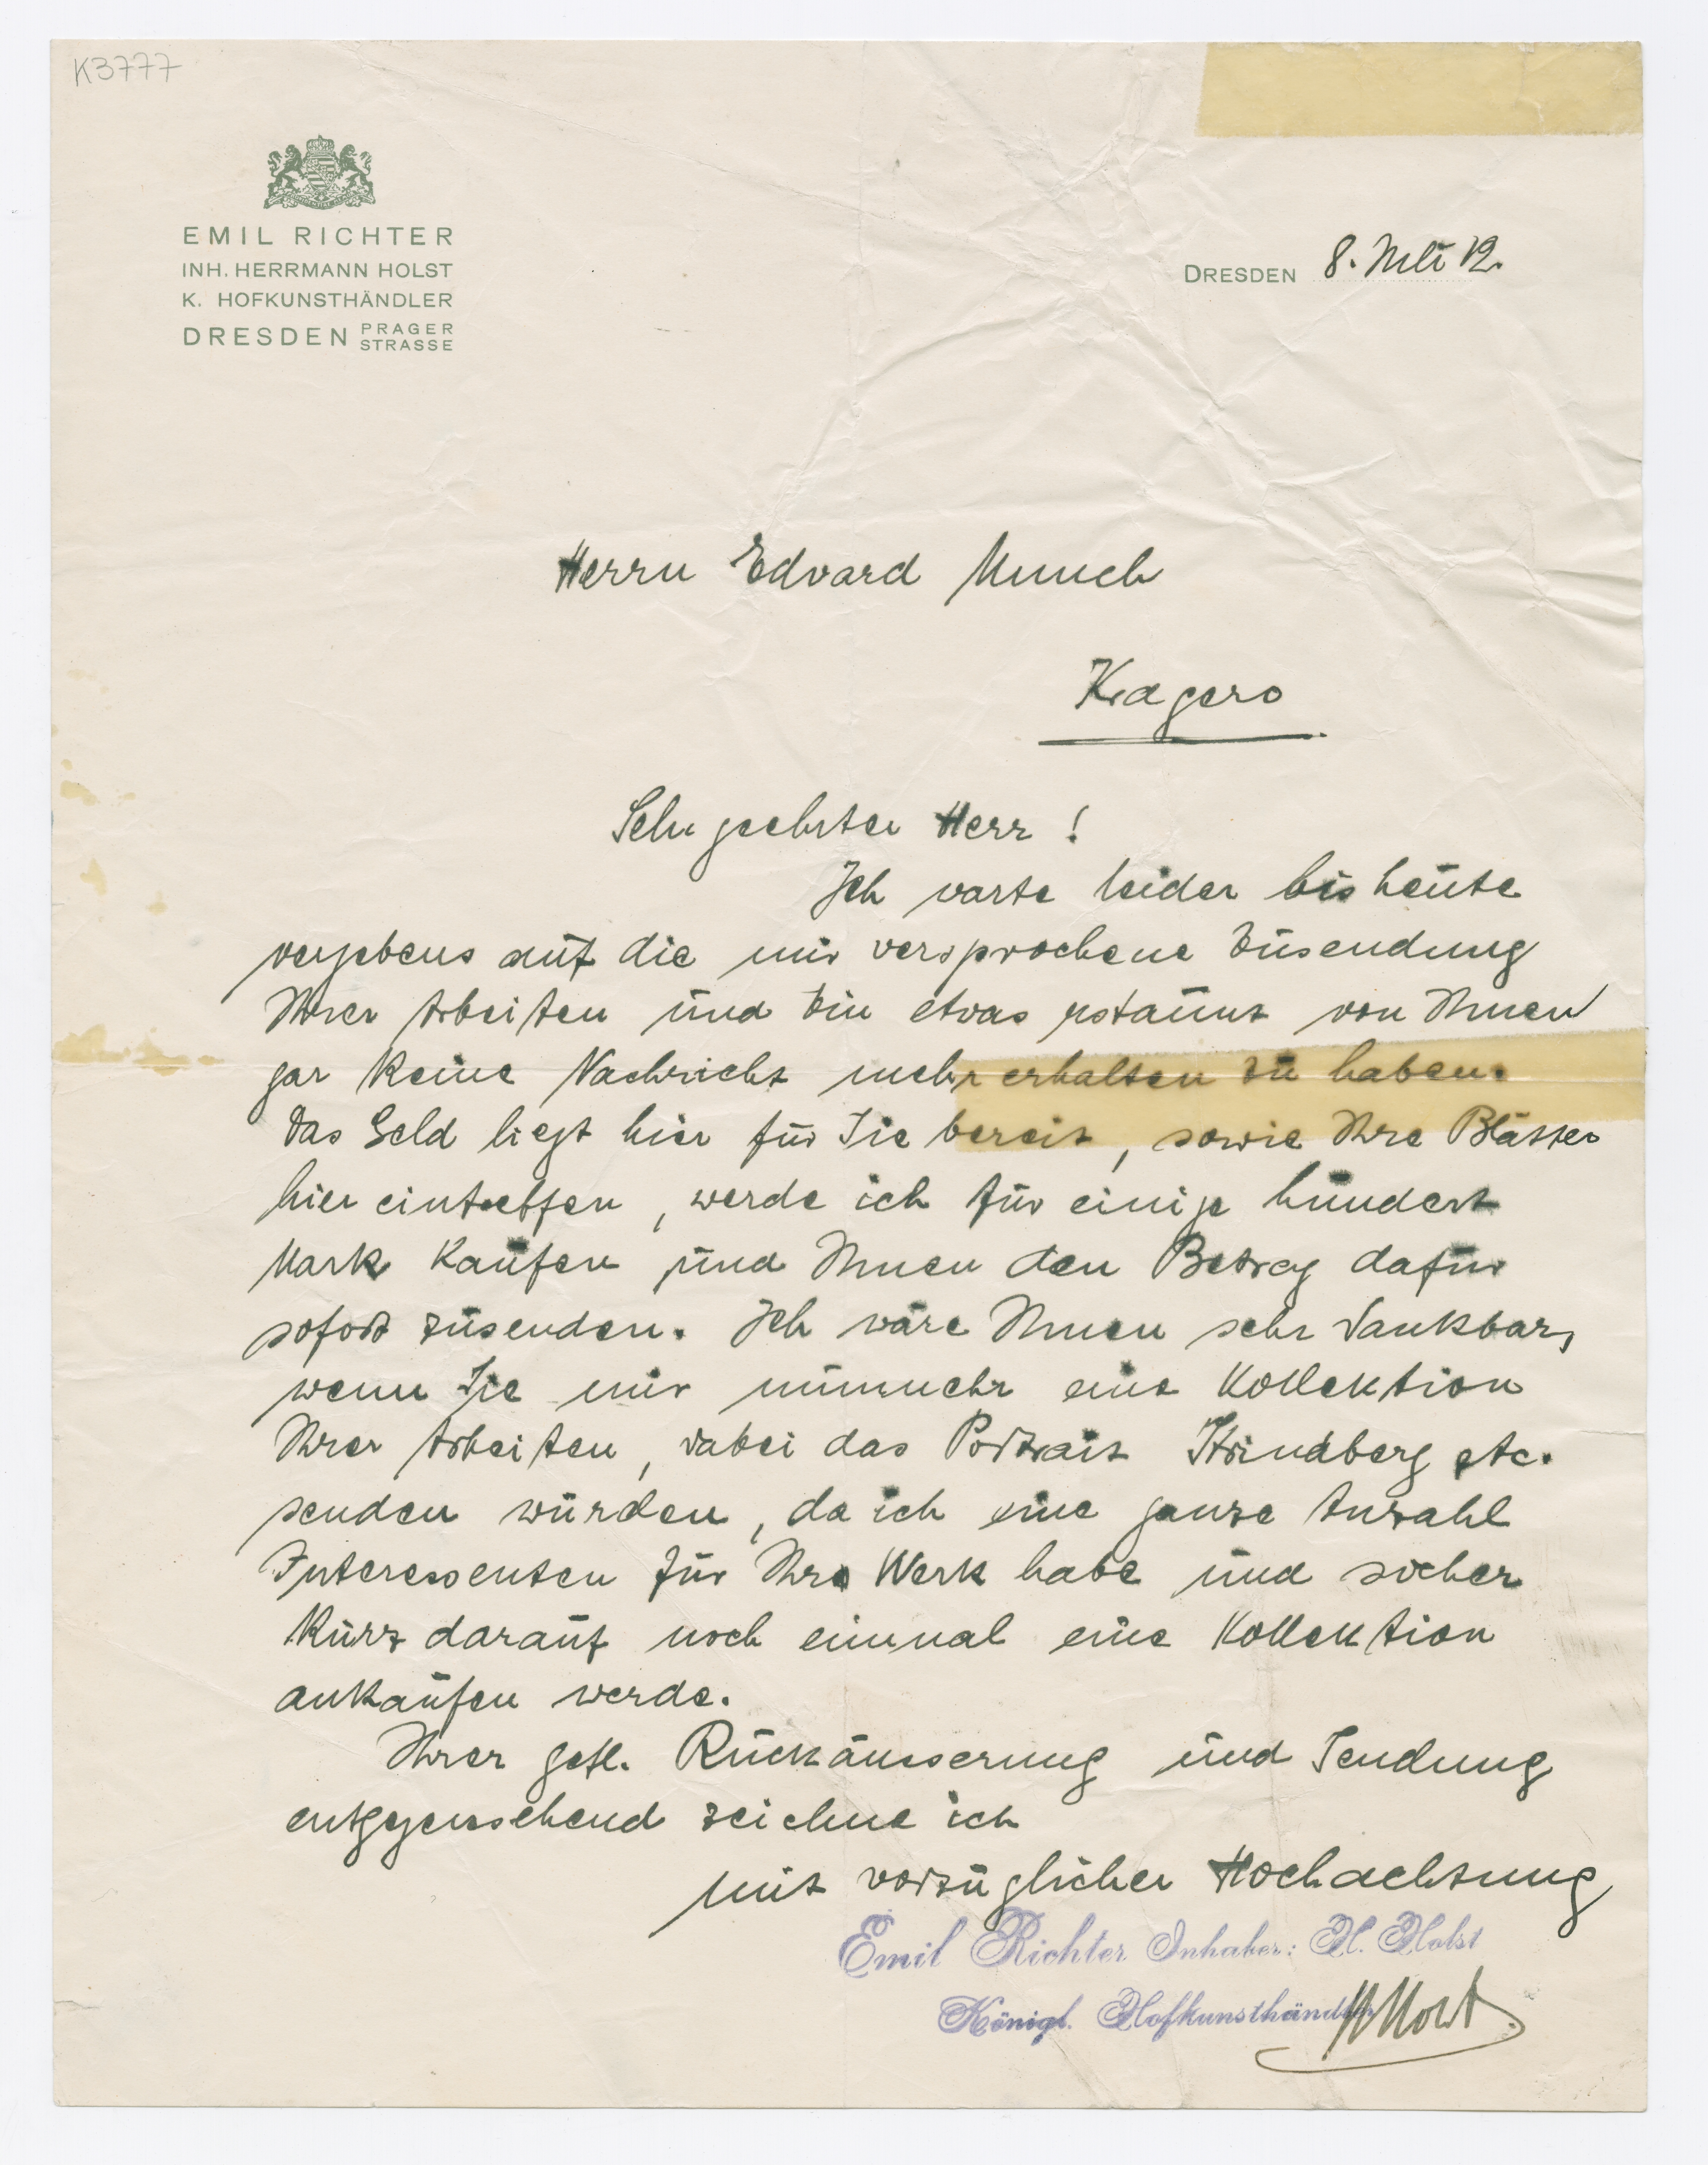 K3777
EMIL RICHTER
INH. HERRMANN HOLST
K. HOFKUNSTHÄNDLER
DRESDEN PRAGER STRASSE
DRESDEN 8. Juli 12.
Herrn Edvard Munch
Kragerö
Sehr geehrter Herr !
Ich warte leider bis heute
vergebens auf die mir versprochene Zusendung
Ihrer Arbeiten und bin etwas erstaunt von Ihnen
gar keine Nachricht mehr erhalten zu haben.
Das Geld liegt hier für Sie bereit, sowie Ihre Blätter
hier eintreffen, werde ich für einige hundert
Mark kaufen und Ihnen den Betrag dafür
sofort zusenden. Ich wäre Ihnen sehr dankbar,
wenn Sie mir nunmehr eine Kollektion
Ihrer Arbeiten, dabei das Portrait Strindberg etc.
senden würden, da ich eine ganze Anzahl
Interessenten für Ihre Werk habe und sicher
kurz darauf noch einmal eine Kollektion
ankaufen werde.
Ihrer gefl. Rückäusserung und Sendung
entgegensehend zeichne ich
mit vorzüglicher Hochachtung
Emil Richter Inhaber: H. Holst
Königl. Hofkunsthändler
H Holst